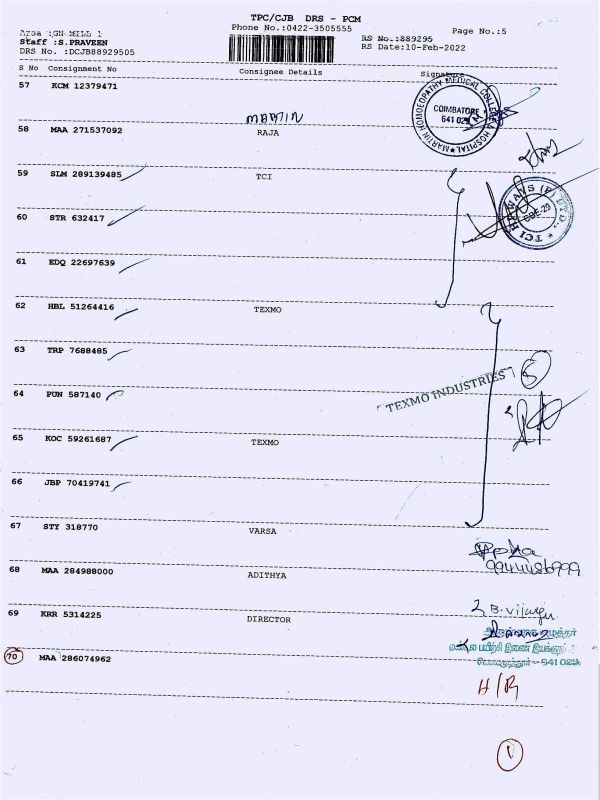 TPC/CJB DRS - PCM
Phone No.:0422-3505555
Page No.:5
Area :GN MILL 1
Staff :S.PRAVEEN
DRS No. :DCJB88929505
RS No.:889295
RS Date:10-Feb-2022
S No Consignment No Consignee Details Signature
57 KCM 12379471
MARTIN HOMOEOPATHY MEDICAL COLLEGE & HOSPITAL
COIMBATORE
641 029
MARTIN
58 MAA 271537092 RAJA
59 SLM 289139485 TCI
60 STR 632417
CBE-29
61 EDQ 22697639
62 HBL 51264416 TEXMO
63 TRP 7688485
64 PUN 587140
TEXMO INDUSTRIES
65 KOC 59261687 TEXMO
66 JBP 70419741
67 STY 318770 VARSA
9944486999
68 MAA 284988000 ADITHYA
69 KRR 5314225 DIRECTOR
70 MAA 286074962
641 029
H/R
1